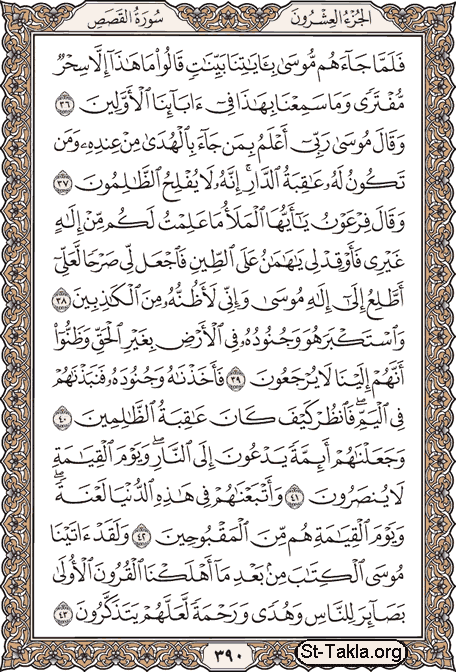 الجزء العشرون
سورة القصص
فَلَمَّا جَآءَهُم مُّوسَىٰ بِـَٔايَـٰتِنَا بَيِّنَـٰتٍ قَالُوا۟ مَا هَـٰذَآ إِلَّا سِحْرٌ
مُّفْتَرًى وَمَا سَمِعْنَا بِهَـٰذَا فِىٓ ءَابَآئِنَا ٱلْأَوَّلِينَ ٣٦
وَقَالَ مُوسَىٰ رَبِّىٓ أَعْلَمُ بِمَن جَآءَ بِٱلْهُدَىٰ مِنْ عِندِهِۦ وَمَن
تَكُونُ لَهُۥ عَـٰقِبَةُ ٱلدَّارِ ۖ إِنَّهُۥ لَا يُفْلِحُ ٱلظَّـٰلِمُونَ ٣٧
وَقَالَ فِرْعَوْنُ يَـٰٓأَيُّهَا ٱلْمَلَأُ مَا عَلِمْتُ لَكُم مِّنْ إِلَـٰهٍ
غَيْرِى فَأَوْقِدْ لِى يَـٰهَـٰمَـٰنُ عَلَى ٱلطِّينِ فَٱجْعَل لِّى صَرْحًا لَّعَلِّىٓ
أَطَّلِعُ إِلَىٰٓ إِلَـٰهِ مُوسَىٰ وَإِنِّى لَأَظُنُّهُۥ مِنَ ٱلْكَـٰذِبِينَ ٣٨
وَٱسْتَكْبَرَ هُوَ وَجُنُودُهُۥ فِى ٱلْأَرْضِ بِغَيْرِ ٱلْحَقِّ وَظَنُّوٓا۟
أَنَّهُمْ إِلَيْنَا لَا يُرْجَعُونَ ٣٩ فَأَخَذْنَـٰهُ وَجُنُودَهُۥ فَنَبَذْنَـٰهُمْ
فِى ٱلْيَمِّ ۖ فَٱنظُرْ كَيْفَ كَانَ عَـٰقِبَةُ ٱلظَّـٰلِمِينَ ٤٠
وَجَعَلْنَـٰهُمْ أَئِمَّةً يَدْعُونَ إِلَى ٱلنَّارِ ۖ وَيَوْمَ ٱلْقِيَـٰمَةِ
لَا يُنصَرُونَ ٤١ وَأَتْبَعْنَـٰهُمْ فِى هَـٰذِهِ ٱلدُّنْيَا لَعْنَةً ۖ
وَيَوْمَ ٱلْقِيَـٰمَةِ هُم مِّنَ ٱلْمَقْبُوحِينَ ٤٢ وَلَقَدْ ءَاتَيْنَا
مُوسَى ٱلْكِتَـٰبَ مِنۢ بَعْدِ مَآ أَهْلَكْنَا ٱلْقُرُونَ ٱلْأُولَىٰ
بَصَآئِرَ لِلنَّاسِ وَهُدًى وَرَحْمَةً لَّعَلَّهُمْ يَتَذَكَّرُونَ ٤٣
٣٩٠
St-Takla.org